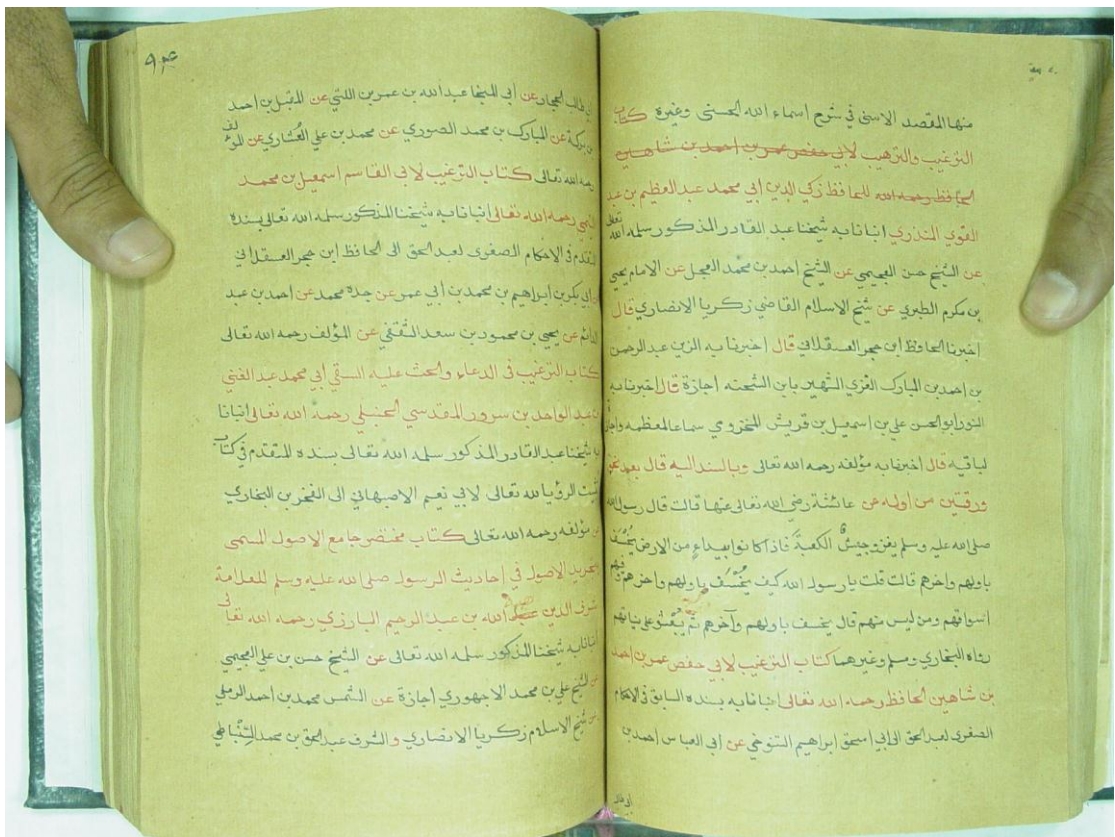 منها المقصد الاسنى في شرح اسماء الله الحسنى وغيره كتاب
الترغيب والترهيب لابي حفص عمر بن احمد بن شاهين
الحافظ رحمه الله للحافظ زكي الدين ابي محمد عبد العظيم بن عبد
القوي المنذري انبانا به شيخنا عبد القادر المذكور سلمه الله تعالى
عن الشيخ حسن العجيمي عن الشيخ احمد بن محمد العجل عن الامام يحيى
بن مكرم الطبري عن شيخ الاسلام القاضي زكريا الانصاري قال
اخبرنا الحافظ ابن حجر العسقلاني قال اخبرنا به الزين عبد الرحمن
بن احمد بن المبارك الغزي الشهير بابن الشحنه اجازة قال اخبرنا به
النور ابو الحسن علي بن اسمعيل بن قريش المخزومي سماعا لمعظمه واجازة
لباقيه قال اخبرنا به مؤلفه رحمه الله تعالى وبالسند اليه قال بعد نحو
ورقتين من اوله عن عائشة رضي الله تعالى عنها قالت قال رسول الله
صلى الله عليه وسلم يغزو جيش الكعبة فاذا كانوا ببيداء من الارض يخسف
باولهم واخرهم قالت قلت يا رسول الله كيف يخسف باولهم واخرهم وفيهم
اسواقهم ومن ليس منهم قال يخسف باولهم وآخرهم ثم يبعثو على نياتهم
رواه البخاري ومسلم وغيرهما كتاب الترغيب لابي حفص عمر بن احمد
بن شاهين الحافظ رحمه الله تعالى انبانا به بسنده السابق في الاحكام
الصغرى لعبد الحق الى ابي اسحق ابراهيم التنوخي عن ابي العباس احمد بن
ابي طالب
ابي طالب الحجار عن ابي المنجا عبد الله بن عمر بن اللتي عن المقبل بن احمد
بن بركة عن المبارك بن محمد الصوري عن محمد بن علي العشاري عن المؤلف
رحمه الله تعالى كتاب الترغيب لابي القاسم اسمعيل بن محمد
التيمي رحمه الله تعالى انبانا به شيخنا المذكور سلمه الله تعالى بسنده
المتقدم في الاحكام الصغرى لعبد الحق الى الحافظ ابن حجر العسقلاني
عن ابي بكر بن ابراهيم بن محمد بن ابي عمر عن جده محمد عن احمد بن عبد
الدائم عن يحيى بن محمود بن سعد الثقفي عن المؤلف رحمه الله تعالى
كتاب الترغيب في الدعاء والحث عليه لتقي ابي محمد عبد الغني
بن عبد الواحد بن سرور المقدسي الحنبلي رحمه الله تعالى انبانا
به شيخنا عبد القادر المذكور سلمه الله تعالى بسنده المتقدم في كتاب
الرؤيا لله تعالى لابي نعيم الاصبهاني الى الفخر بن البخاري
عن مؤلفه رحمه الله تعالى كتاب مختصر جامع الاصول المسمى
تجريد الاصول في احاديث الرسول صلى الله عليه وسلم للعلامة
شرف الدين الله بن عبد الرحيم البارزي رحمه الله تعالى
انبانا به شيخنا المذكور سلمه الله تعالى عن الشيخ حسن بن علي العجيمي
عن الشيخ علي بن محمد الاجهوري اجازة عن الشمس محمد بن احمد الرملي
عن شيخ الاسلام زكريا الانصاري والشرف عبد الحق بن محمد السنباطي